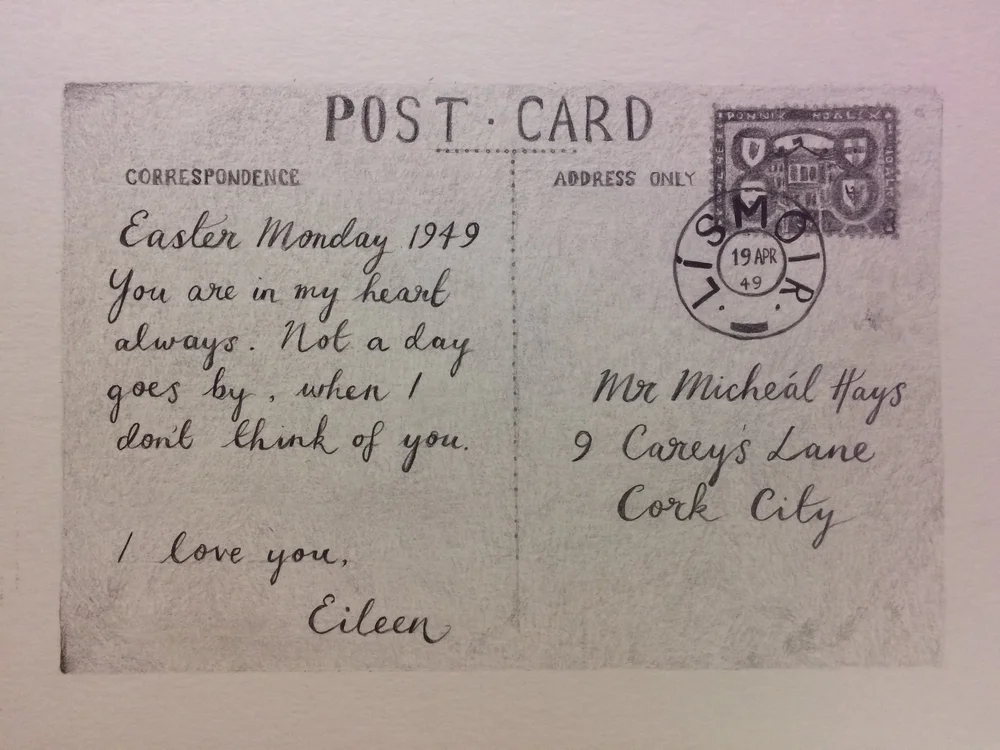 POST · CARD
CORRESPONDENCE
Easter Monday 1949
You are in my heart
always. Not a day
goes by, when I
don't think of you.
I love you,
Eileen
ADDRESS ONLY
LiSMOIR
19 APR
49
Mr Micheál Hays
9 Carey's Lane
Cork City